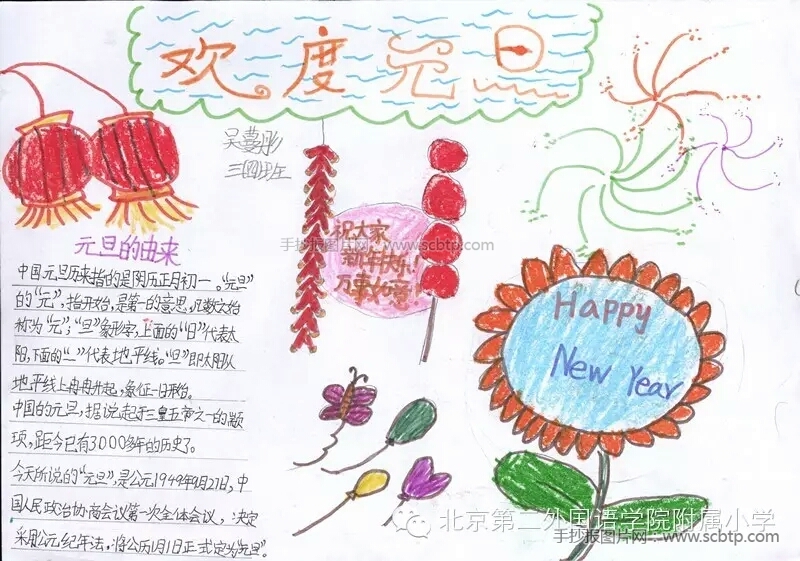 欢度元旦
吴蔓彤
三四班
元旦的由来
中国元旦历来指的是阴历正月初一。“元旦”
的“元”，指开始，是第一的意思，凡数之始
称为“元”；“旦”象形字，上面的“日”代表太
阳，下面的“一”代表地平线。“旦”即太阳从
地平线上冉冉升起，象征一日开始。
中国的元旦，据说起于三皇五帝之一的颛
顼，距今已有3000多年的历史了。
今天所说的“元旦”，是公元1949年9月27日，中
国人民政治协商会议第一次全体会议，决定
采用公元纪年法，将公历1月1日正式定为“元旦”。
祝大家
新年快乐！
万事如意！
手抄报图片网：www.scbtp.com
Happy
New Year
北京第二外国语学院附属小学
手抄报图片网：www.scbtp.com